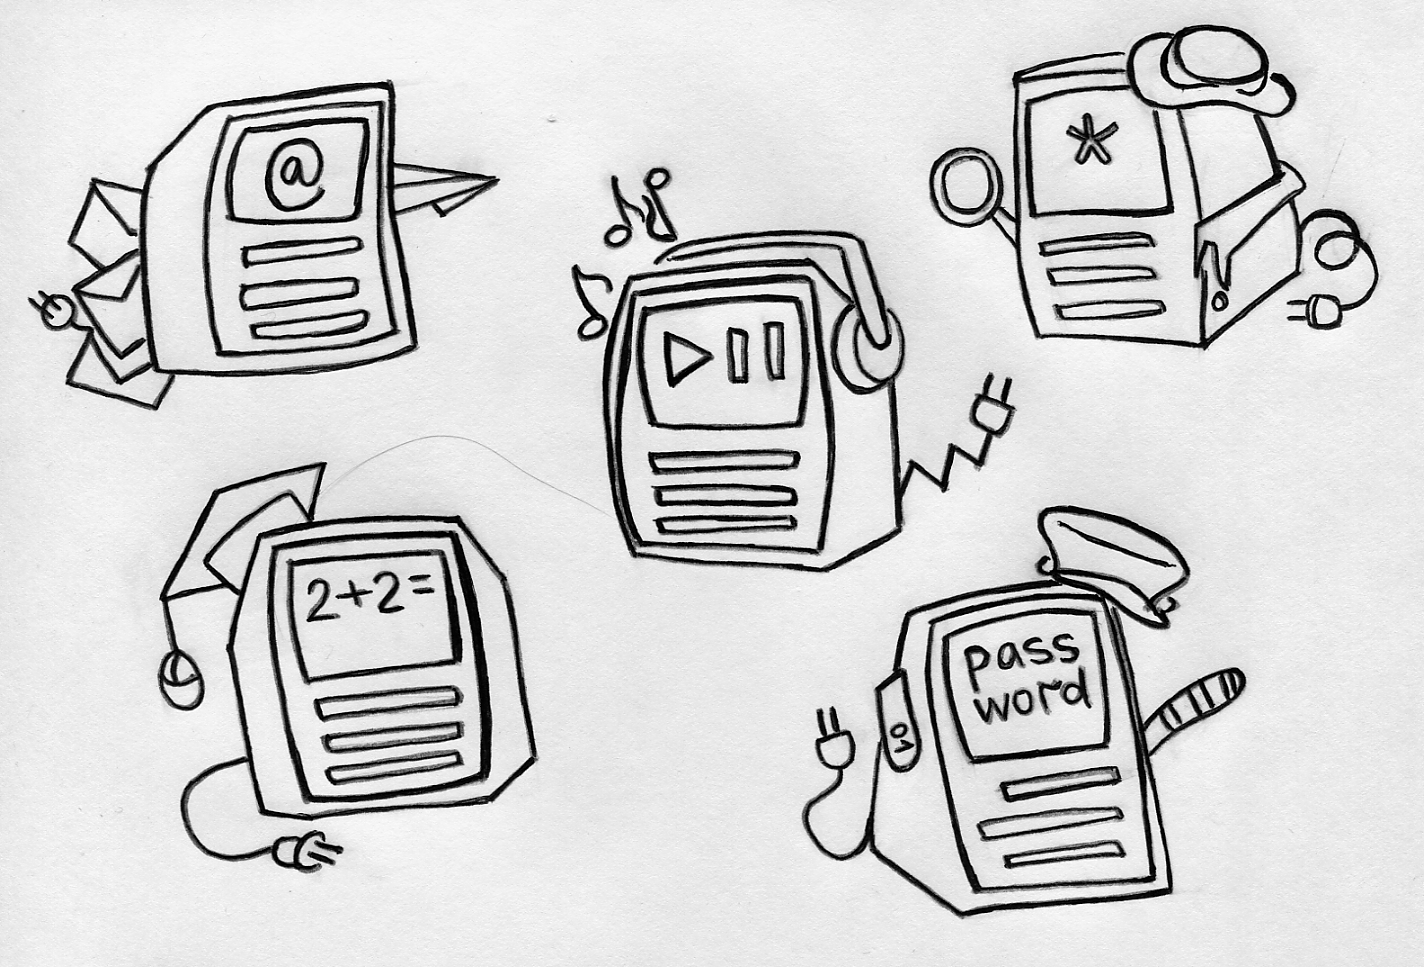 @
*
2+2=
pass
word
01